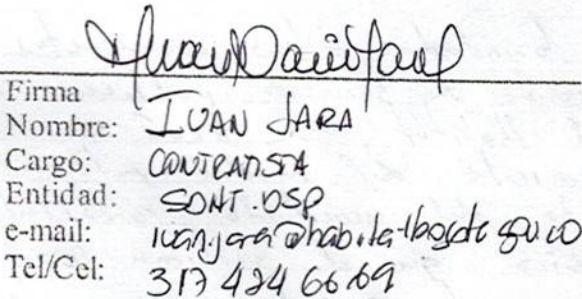 Firma
Nombre: IVAN JARA
Cargo: CONTRATISTA
Entidad:
e-mail: ivan.jara@habitatbogota.gov.co
Tel/Cel: 317 424 66 69